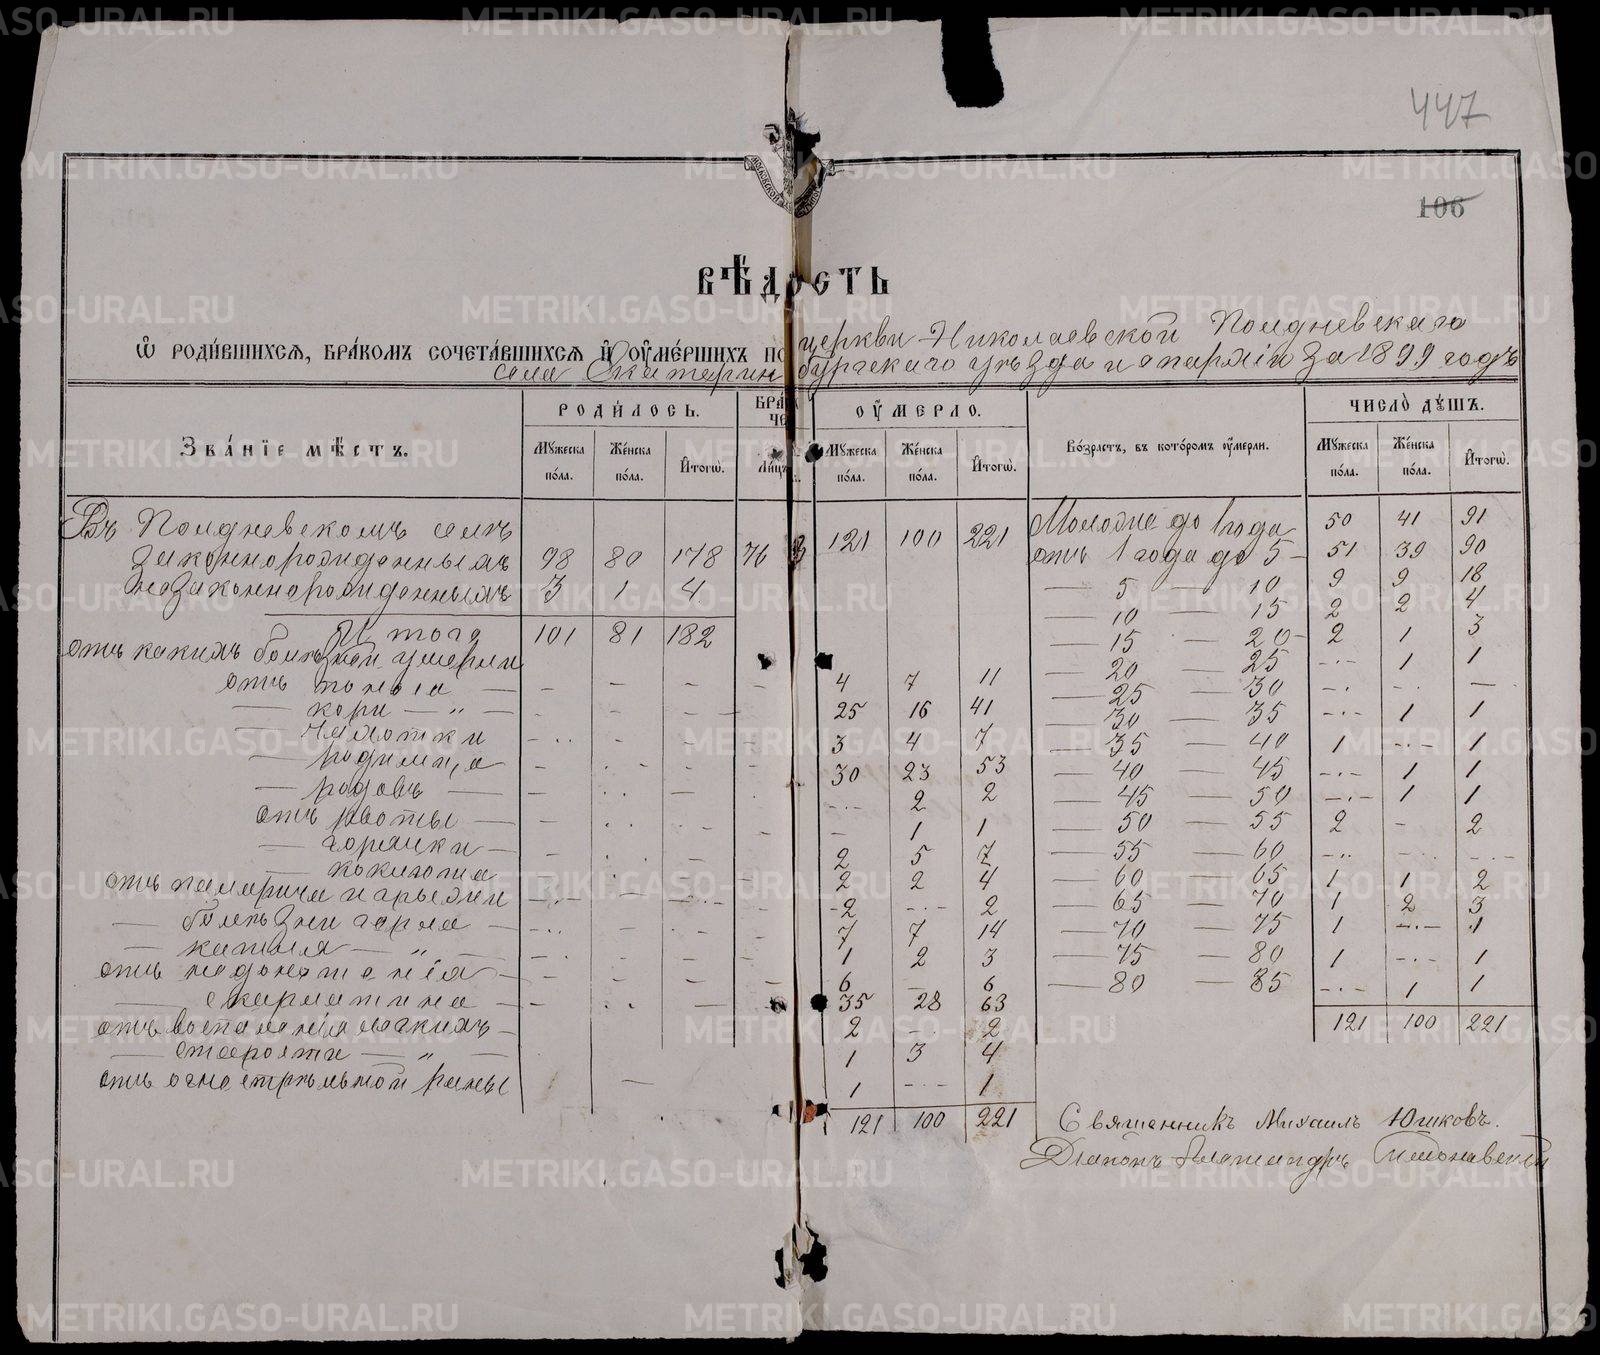 447
106
МОСКОВСКОЙ
ВѢДОСТЬ
Ѡ РОДИ́ВШИХСЯ, БРА́КОМЪ СОЧЕТА́ВШИХСЯ И҆ ОУ҆МЕ́РШИХЪ ПО церкви Николаевской Полдневскаго
села Екатеринбургскаго уѣзда и епархіи за 1899 годъ
ЗВА́НІЕ МѢ́СТЪ.
РОДИ́ЛОСЬ.
Му́жеска по́ла.
Же́нска по́ла.
И҆того̀.
БРА́К
Ли́цъ
ОУ҆МЕРЛО.
Му́жеска по́ла.
Же́нска по́ла.
И҆того̀.
Во́зрастъ, въ кото́ромъ оу҆мерли.
ЧИСЛО̀ ДУ́ШЪ.
Му́жеска по́ла.
Же́нска по́ла.
И҆того̀.
Въ Полдневскомъ селѣ 121 100 221 Молодше до 1 года 50 41 91
законнорожденныхъ 98 80 178 76 отъ 1 года до 5 – 51 39 90
незаконнорожденныхъ 3 1 4 — 5 — 10 9 9 18
— 10 — 15 2 2 4
Итого 101 81 182 — 15 — 20 – 2 1 3
отъ какихъ болѣзней умерли — 20 — 25 -·- 1 1
отъ поноса — – – – – 4 7 11 — 25 — 30 -·- - —
— кори — „ — - – – — 25 16 41 — 30 — 35 -·- 1 1
— чахотки 3 4 7 — 35 — 40 1 -·- 1
— родимца 30 23 53 — 40 — 45 -·- 1 1
— родовъ — -·- 2 2 — 45 — 50 -·- 1 1
отъ рвоты — – 1 1 — 50 — 55 2 - 2
— горячки — 2 5 7 — 55 — 60
— коклюша 2 2 4 — 60 — 65 1 1 2
отъ 2 -·- 2 — 65 — 70 1 2 3
— болѣзни горла — 7 7 14 — 70 — 75 1 -·- 1
— кашля — „ — 1 2 3 — 75 — 80 1 -·- 1
отъ недоношенія — 6 — 6 — 80 — 85 -·- 1 1
— скарлатина — 35 28 63 121 100 221
отъ воспаленія легкихъ – 2 -·- 2
— старости — „ — 1 3 4
отъ огнестрѣльной раны — 1 -·- 1
121 100 221
Священникъ Михаилъ Юшковъ.
Діаконъ Александръ
METRIKI.GASO-URAL.RU